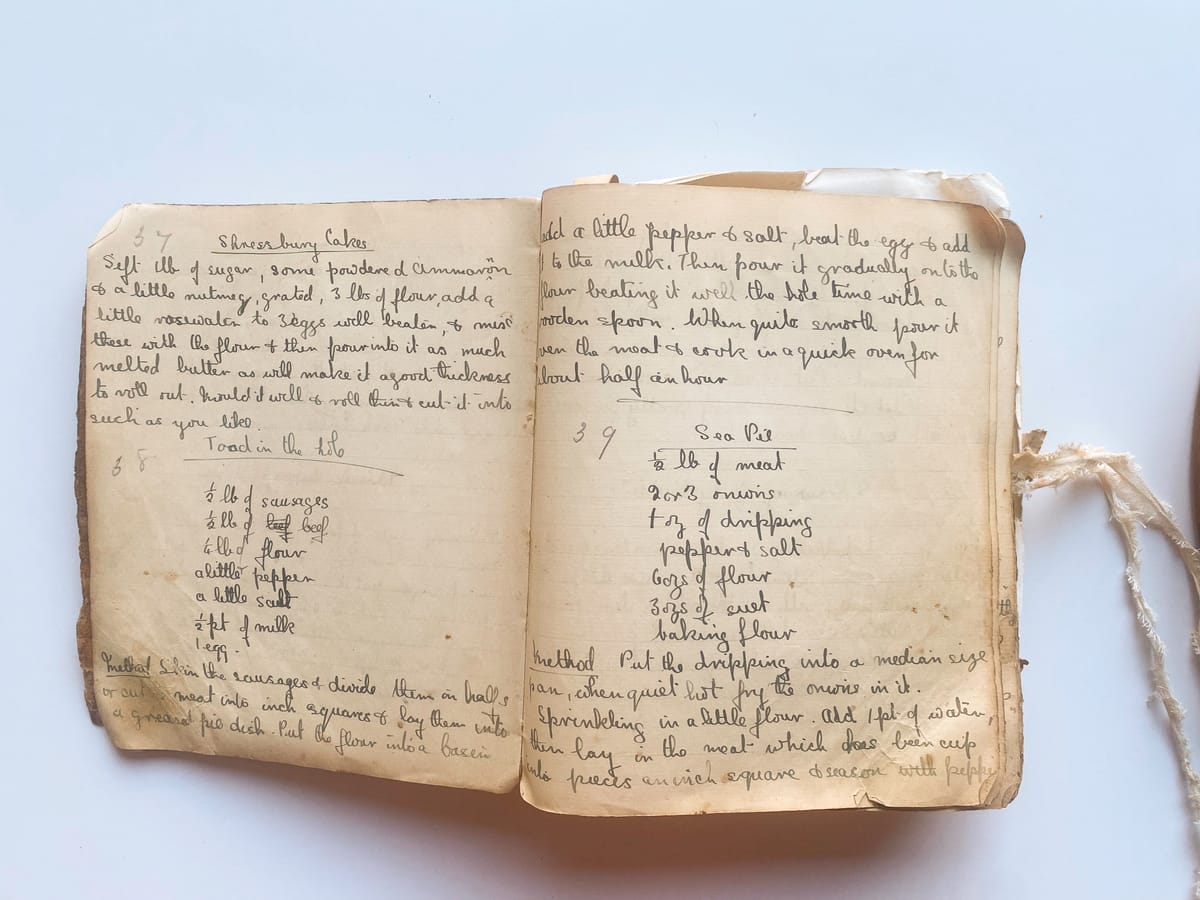 37
Shressbury Cakes
Sift 1lb of sugar, some powdered Cinnamon
& a little nutmeg, grated, 3 lbs of flour, add a
little rosewater to 3 eggs well beaten, & mix
these with the flour & then pour into it as much
melted butter as will make it a good thickness
to roll out. Mould it well & roll thin & cut it into
such as you like.
38
Toad in the hole
½ lb of sausages
½ lb of beef
¼ lb of flour
a little pepper
a little salt
½ pt of milk
1 egg.
Method Skin the sausages & divide them in halfs
or cut meat into inch squares & lay them into
a greased pie dish. Put the flour into a basin
add a little pepper & salt, beat the egg & add
to the milk. Then pour it gradually onto the
flour beating it well the hole time with a
wooden spoon. When quite smooth pour it
over the meat & cook in a quick oven for
about half an hour
39
Sea Pie
½ lb of meat
2 or 3 onions
1 oz of dripping
pepper & salt
6ozs of flour
3ozs of suet
baking flour
Method Put the dripping into a median size
pan, when quiet hot fry the onions in it.
Sprinkling in a little flour. Add 1 pt of water,
then lay in the meat which has been cup
into pieces an inch square & season with peppe